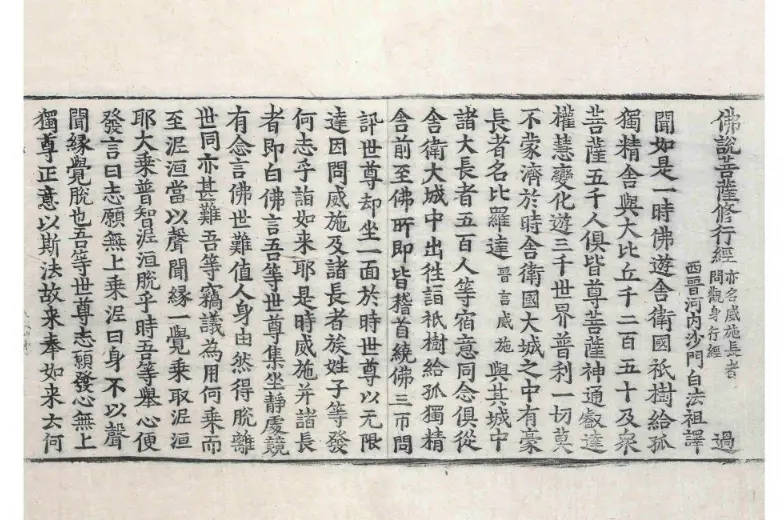 佛說菩薩修行經 亦名威施長者問觀身行經 過
西晉河內沙門白法祖譯
聞如是一時佛遊舍衛國祇樹給孤
獨精舍與大比丘千二百五十及衆
菩薩五千人俱皆尊菩薩神通叡達
權慧變化遊三千世界普利一切莫
不蒙濟於時舍衛國大城之中有豪
長者名比羅達晉言威施與其城中
諸大長者五百人等宿意同念俱從
舍衛大城中出徃詣祇樹給孤獨精
舍前至佛所即皆稽首繞佛三帀問
訊世尊却坐一面於時世尊以无限
達因問威施及諸長者族姓子等發
何志乎詣如来耶是時威施并諸長
者即白佛言吾等世尊集坐靜處競
有念言佛世難值人身由然得脫離
世同亦甚難吾等竊議為用何乘而
至泥洹當以聲聞緣一覺乘取泥洹
耶大乘普智泥洹脫乎時吾等舉心便
發言曰志願無上乘泥曰身不以聲
聞緣覺脫也吾等世尊志願發心無上
獨尊正意以斯法故来奉如来云何